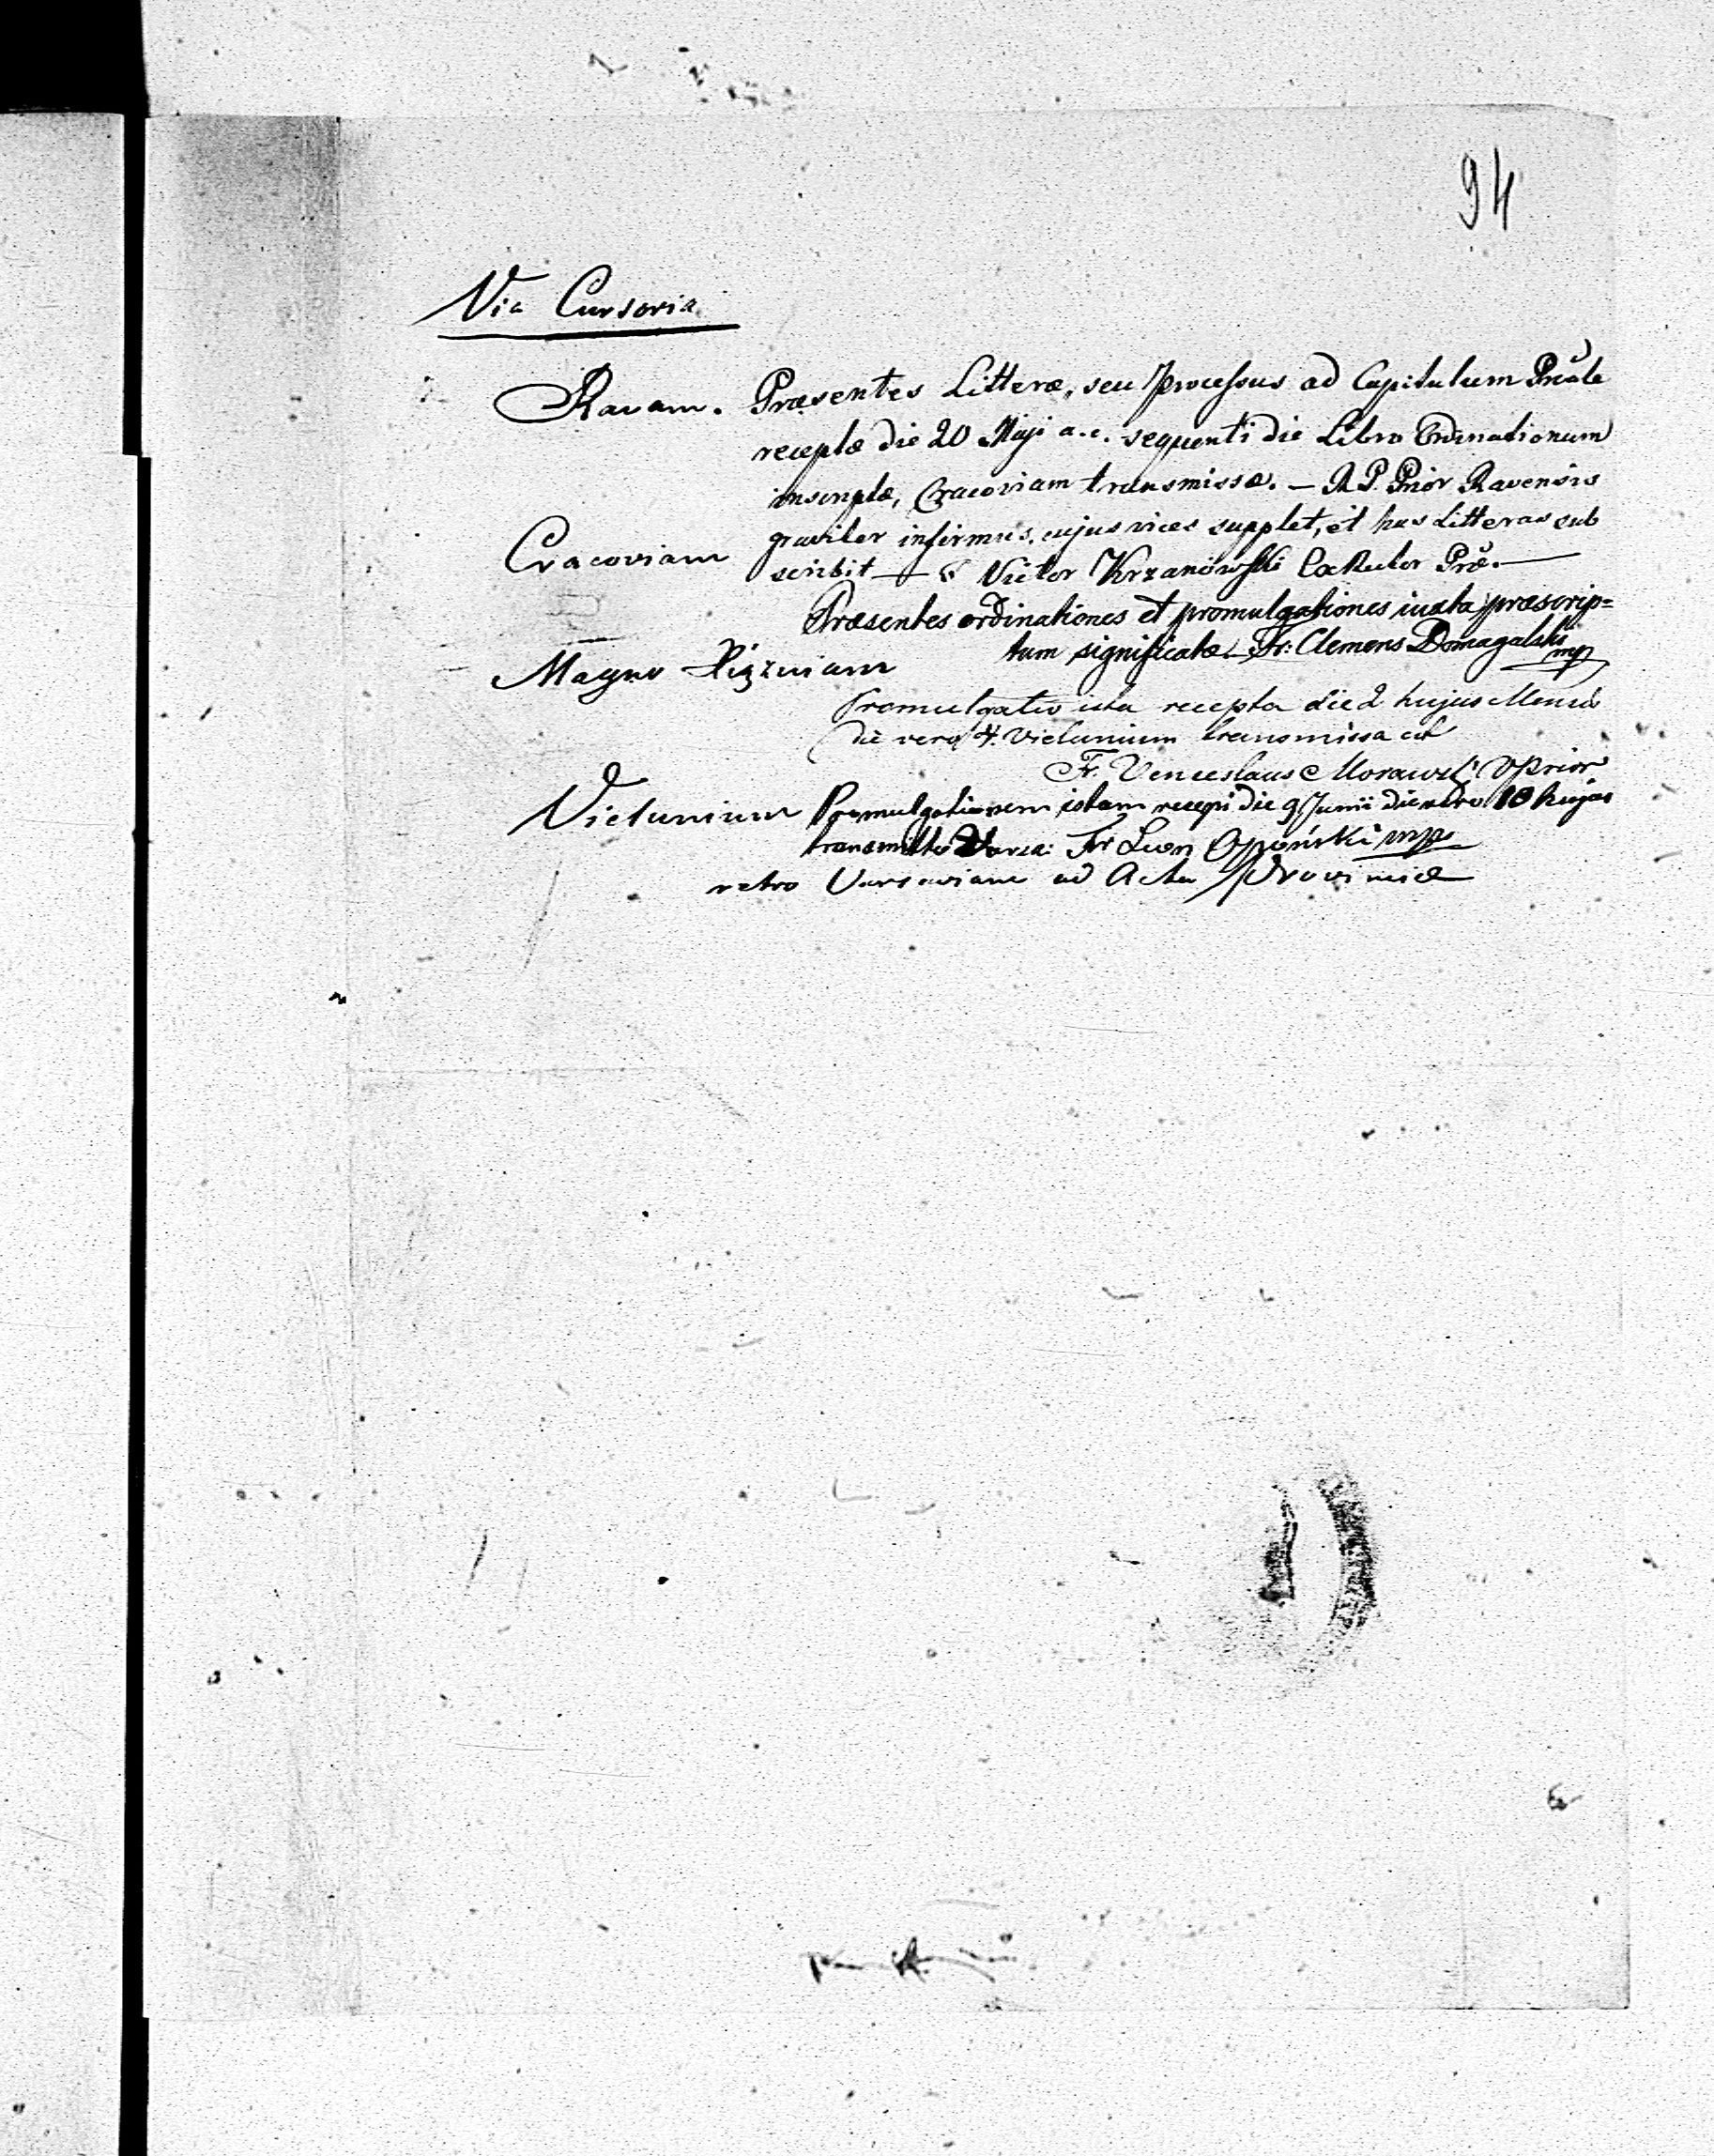 94
Via Cursoria
Ravam. Præsentes Litteræ, seu processus ad Capitulum Prõale
receptæ die 20 Maji a.c. sequenti die Libro Ordinationum
inscriptæ, Cracoviam transmissæ. — R.P. Prior Ravensis
graviter infirmus, cujus vices supplet, et has Litteras sub
Cracoviam scribit — Victor Krzanowski ExRector
Præsentes ordinationes et promulgationes iuxta præscrip=
tum significatæ. Fr: Clemens Domagalski mp
Magno
Promulgatio ista recepta die 2 hujus Mensis
die vero 4. Vielunium transmissa est
Fr. Venceslaus Morawski VPrior
Vielunium Promulgationem istam recepi die 9 Junii die vero 10 hujus
transmitto Fr Leon mp
retro Varsaviam ad Acta Provinciæ